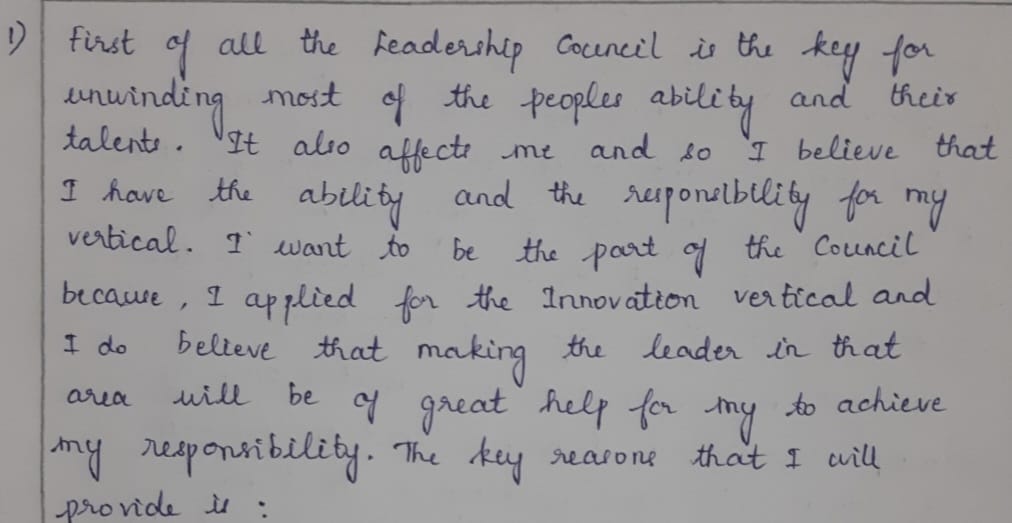 1) First of all the Leadership Council is the key for
unwinding most of the peoples ability and their
talents. It also affects me and so I believe that
I have the ability and the responsibility for my
vertical. I want to be the part of the Council
because, I applied for the Innovation vertical and
I do believe that making the leader in that
area will be of great help for my to achieve
my responsibility. The key reasons that I will
provide is :